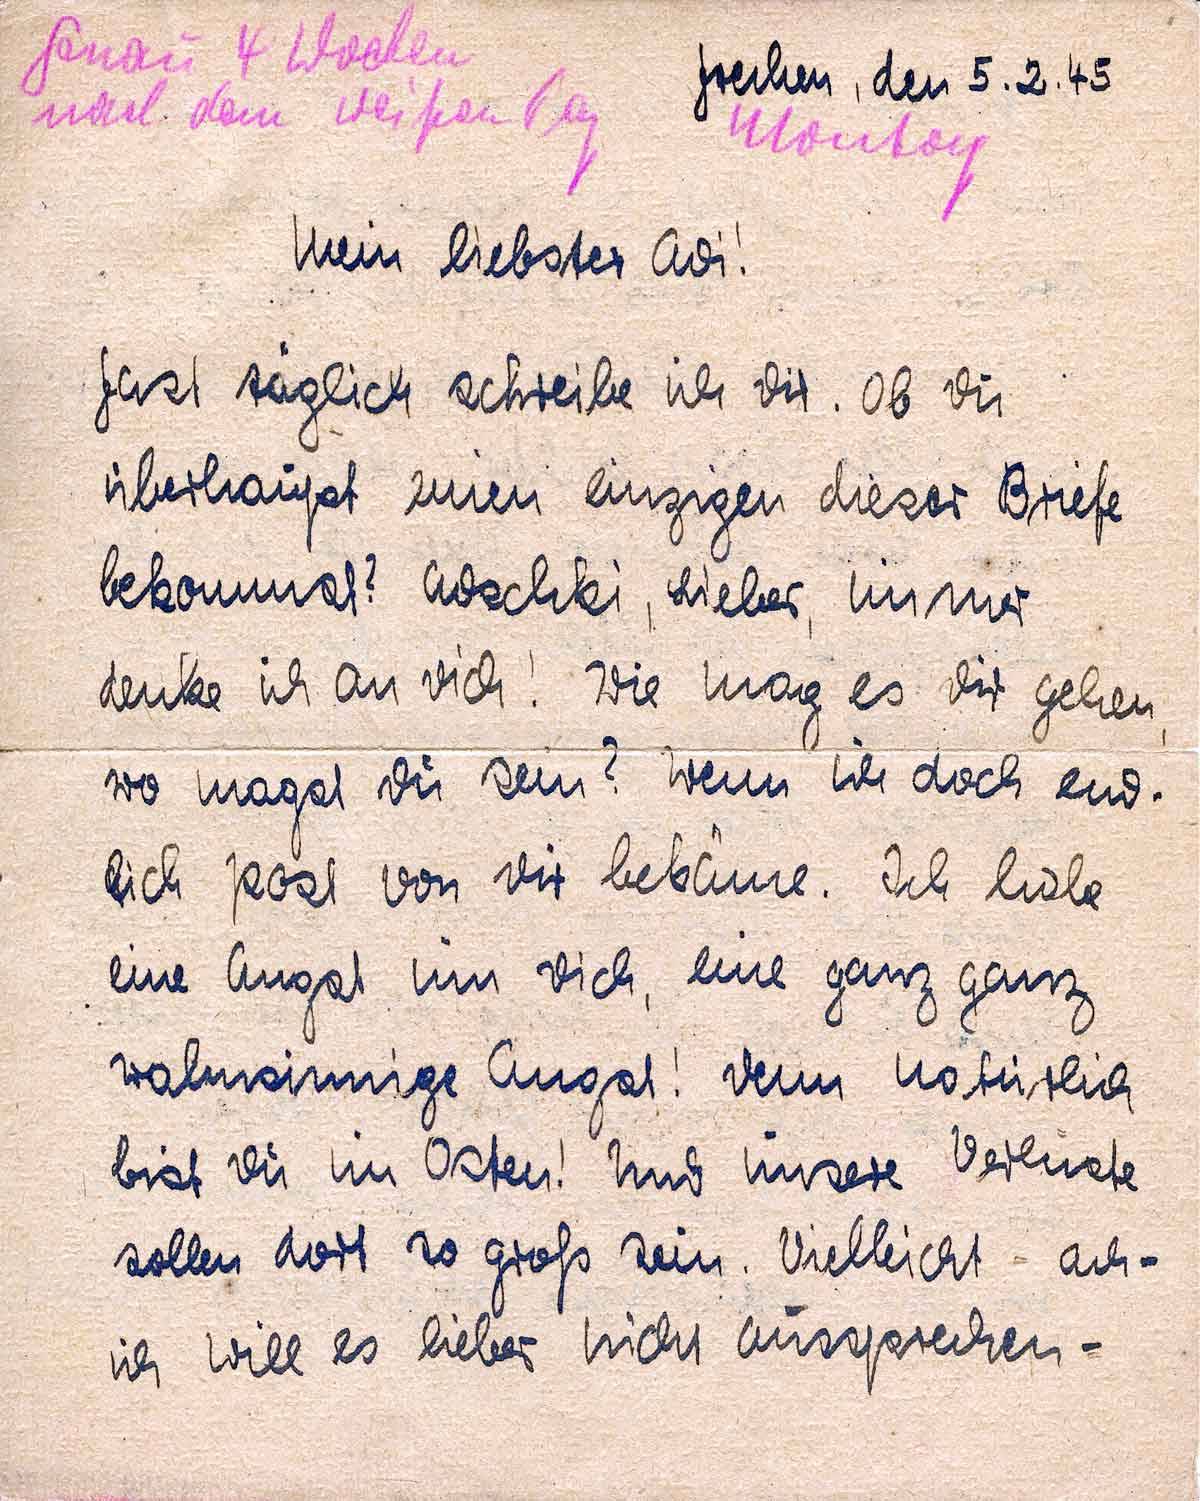 Genau 4 Wochen
nach dem weißen Tag
Frechen, den 5.2.45
Montag
Mein liebster Adi!
Fast täglich schreibe ich dir. Ob du
überhaupt einen einzigen dieser Briefe
bekommst? Adschki, Lieber, immer
denke ich an dich! Wie mag es dir gehen,
wo magst du sein? Wenn ich doch end-
lich Post von dir bekäme. Ich habe
eine Angst um dich, eine ganz ganz
wahnsinnige Angst! Denn natürlich
bist du im Osten! Und unsere Verluste
sollen dort so groß sein. Vielleicht - ach -
ich will es lieber nicht aussprechen -